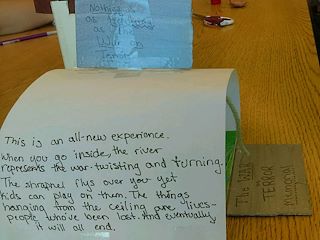 Nothing is
as
as the
War on
Terror
This is an all-new experience.
When you go inside, the river
represents the war-twisting and turning.
The shrapnel flys over you yet
kids can play on them. The things
hanging from the ceiling are lives-
people who've been lost. And eventually,
it will all end.
The WAR
TERROR
Memorial